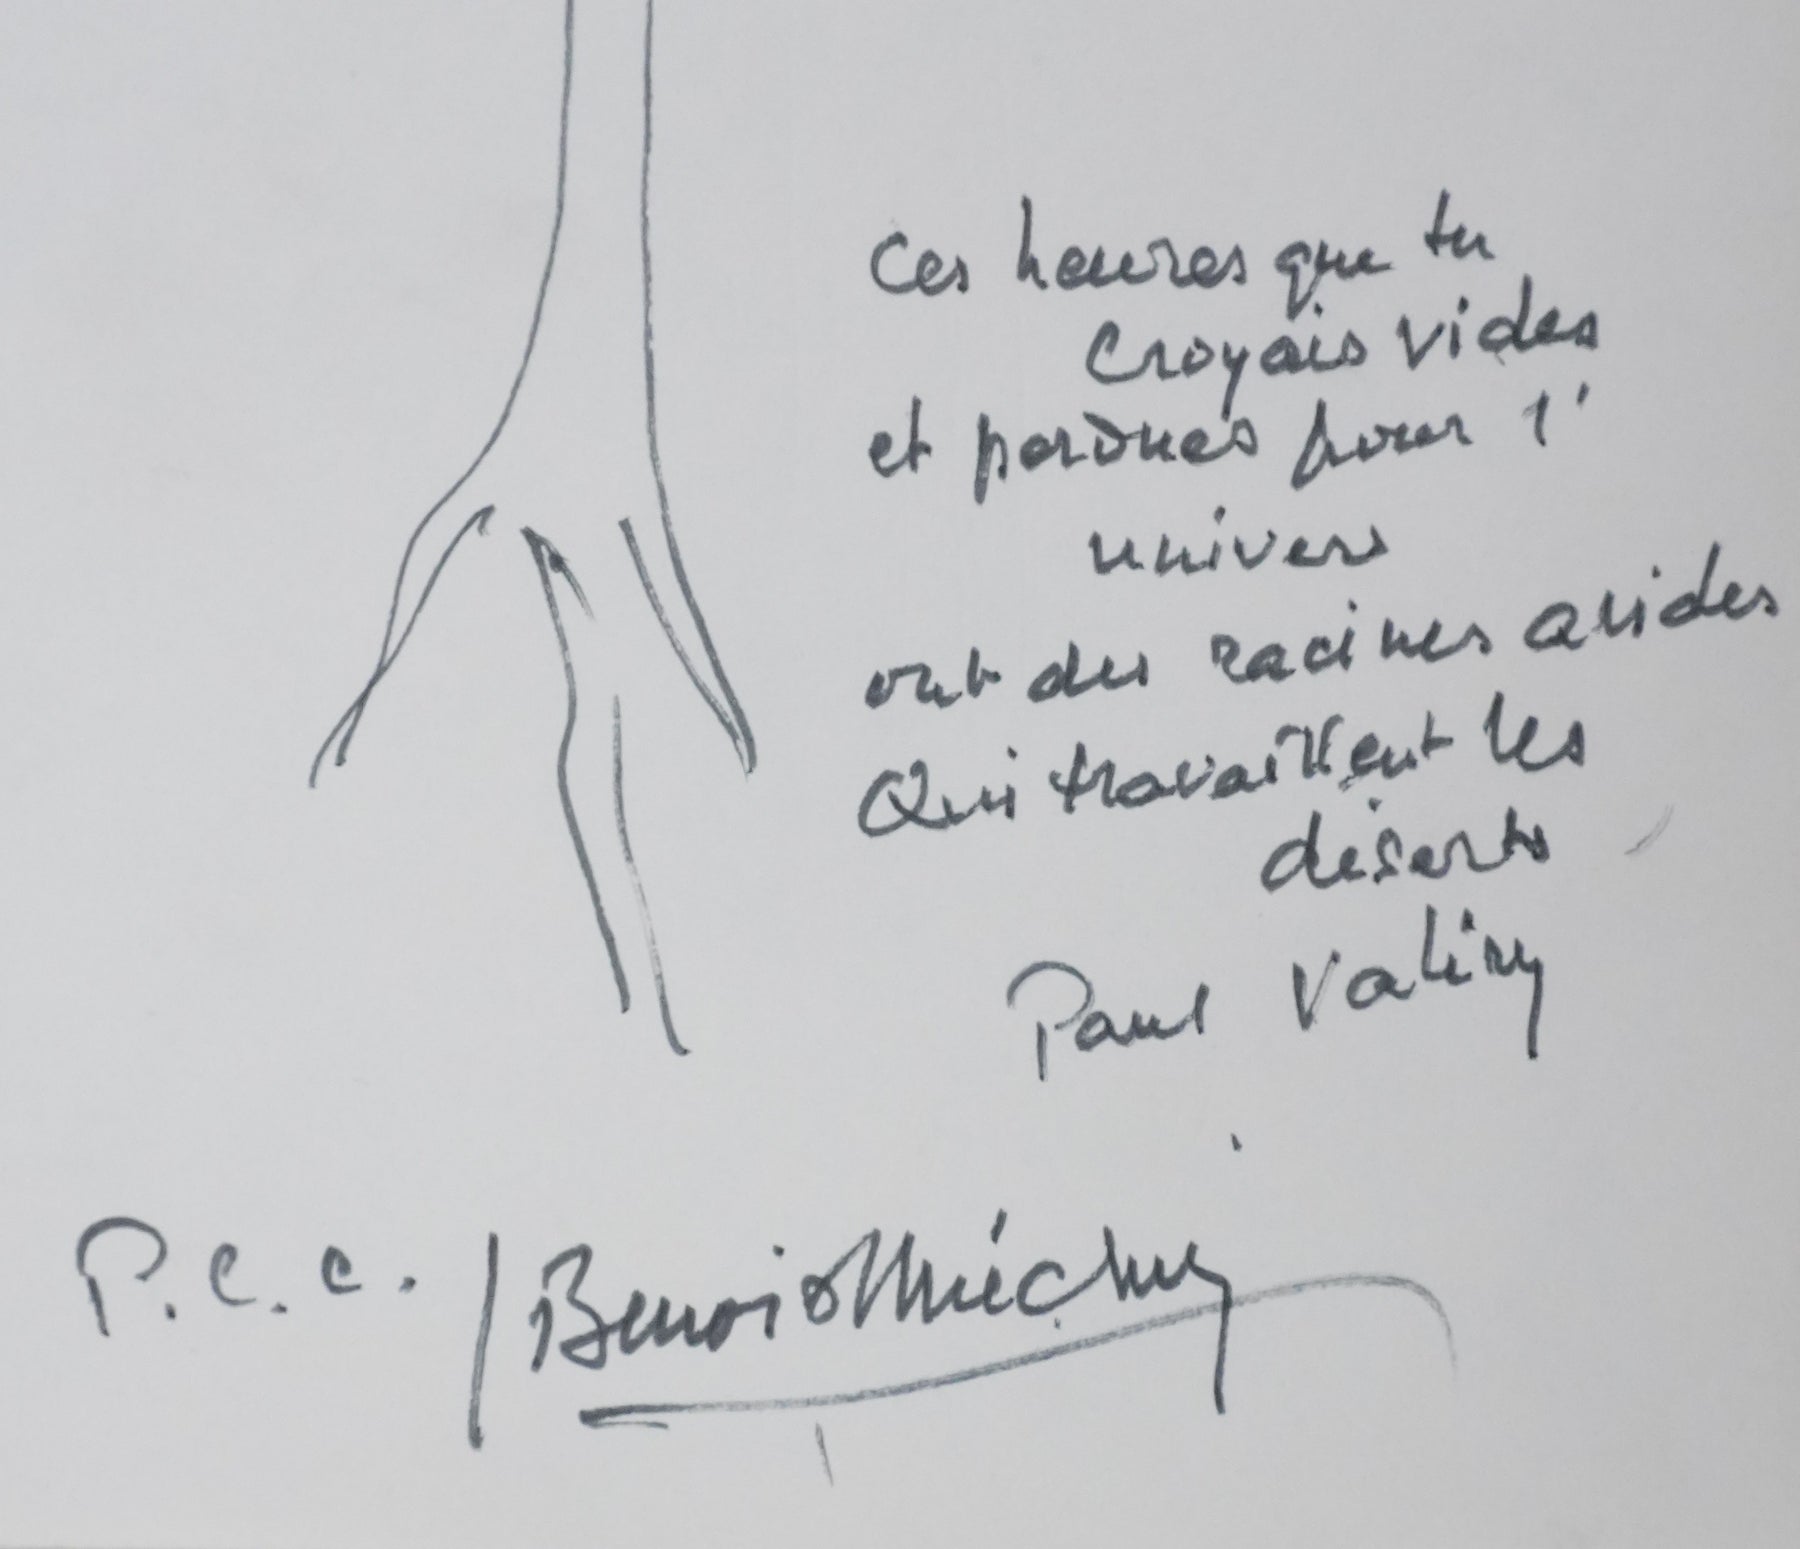 Ces heures que tu
croyais vides
et perdues pour l'
univers
ont des racines avides
Qui travaillent les
déserts
Paul Valéry
P.C.C. / Benoist Méchin